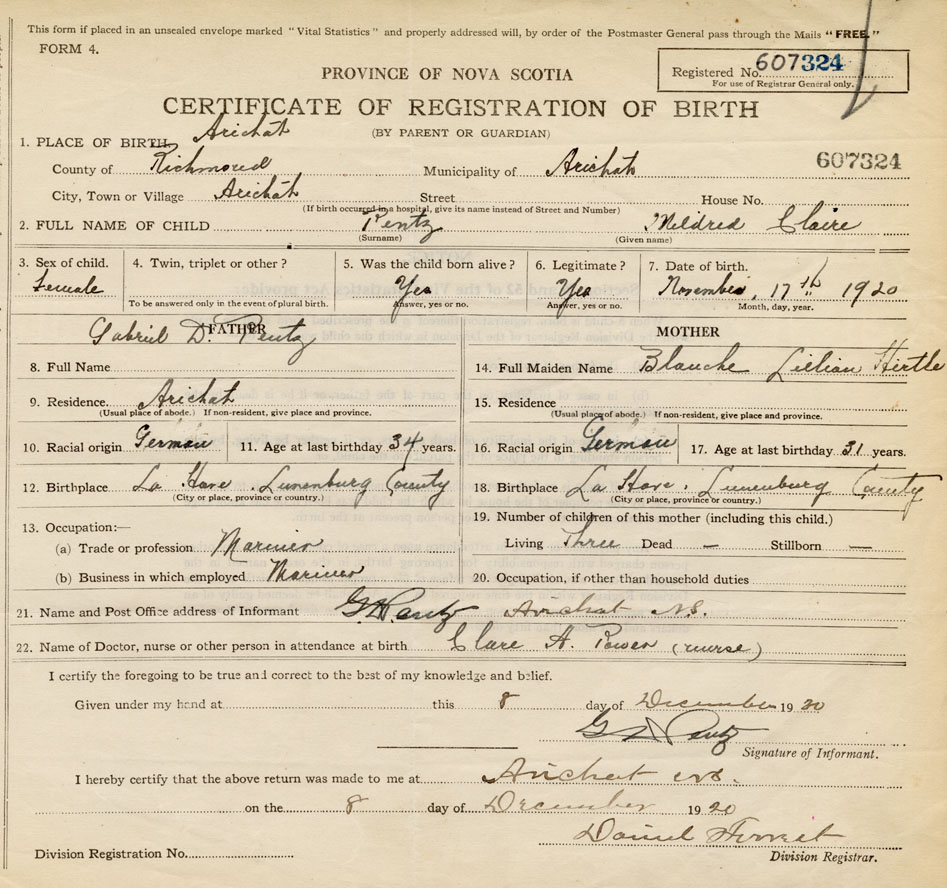 This form if placed in an unsealed envelope marked "Vital Statistics" and properly addressed will, by order of the Postmaster General pass through the Mails "FREE."
FORM 4.
PROVINCE OF NOVA SCOTIA
Registered No. 607324
For use of Registrar General only.
CERTIFICATE OF REGISTRATION OF BIRTH
(BY PARENT OR GUARDIAN)
1. PLACE OF BIRTH Arichat
607324
County of Richmond Municipality of Arichat
City, Town or Village Arichat Street House No.
(If birth occurred in a hospital, give its name instead of Street and Number)
2. FULL NAME OF CHILD Pentz Mildred Claire
(Surname) (Given name)
3. Sex of child. 4. Twin, triplet or other? 5. Was the child born alive? 6. Legitimate? 7. Date of birth.
Female Yes Yes November 17th 1920
To be answered only in the event of plural birth. Answer, yes or no. Answer, yes or no. Month, day, year.
FATHER MOTHER
Gabriel D. Pentz
8. Full Name 14. Full Maiden Name Blanche Lillian Hirtle
9. Residence. Arichat 15. Residence
(Usual place of abode.) If non-resident, give place and province. (Usual place of abode.) If non-resident, give place and province.
10. Racial origin German 11. Age at last birthday 34 years. 16. Racial origin German 17. Age at last birthday 31 years.
12. Birthplace La Have, Lunenburg County 18. Birthplace La Have, Lunenburg County
(City or place, province or country.) (City or place, province or country.)
13. Occupation:— 19. Number of children of this mother (including this child.)
(a) Trade or profession Mariner Living Three Dead — Stillborn —
(b) Business in which employed Mariner 20. Occupation, if other than household duties
21. Name and Post Office address of Informant G D Pentz Arichat N.S.
22. Name of Doctor, nurse or other person in attendance at birth Clare A. (nurse)
I certify the foregoing to be true and correct to the best of my knowledge and belief.
Given under my hand at this 8 day of December 1920
G D Pentz
Signature of Informant.
I hereby certify that the above return was made to me at Arichat N.S.
on the 8 day of December 1920
Daniel
Division Registration No. Division Registrar.